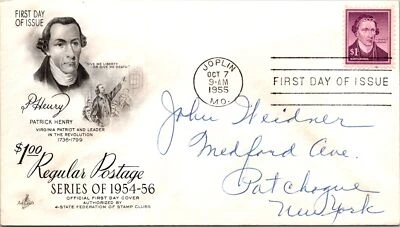 FIRST DAY
OF ISSUE
"GIVE ME LIBERTY
OR GIVE ME DEATH"
P. Henry
PATRICK HENRY
VIRGINIA PATRIOT AND LEADER
IN THE REVOLUTION
1736-1799
$1.00
Regular Postage
SERIES OF 1954-56
OFFICIAL FIRST DAY COVER
AUTHORIZED BY
4-STATE FEDERATION OF STAMP CLUBS
JOPLIN
OCT 7
9-AM
1955
MO.
FIRST DAY OF ISSUE
$1
John Weidner
Medford Ave.
Patchogue
New York